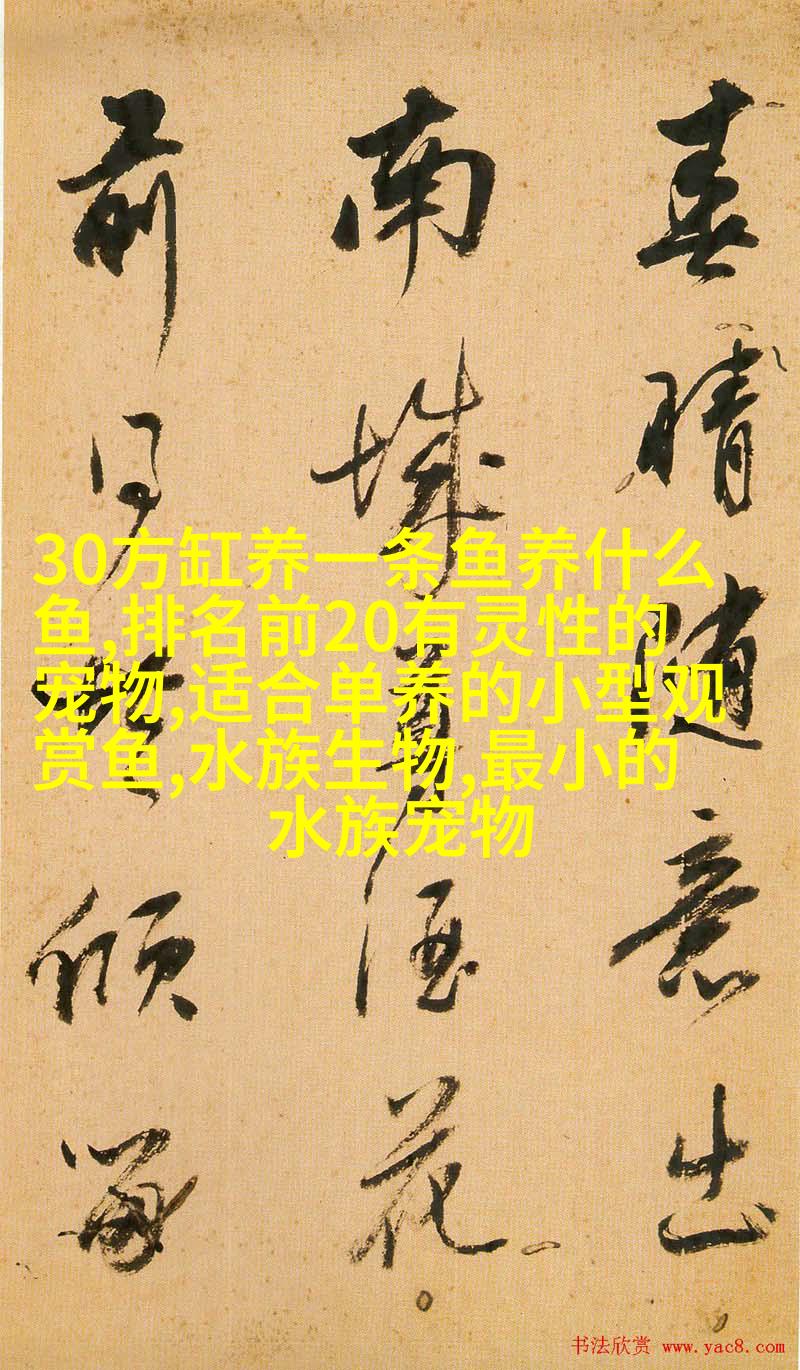 春晴随意出
南城尊酒花
前见□倾写
30方缸养一条鱼养什么
鱼,排名前20有灵性的
宠物,适合单养的小型观
赏鱼,水族生物,最小的
水族宠物
书法欣赏 www.yac8.com